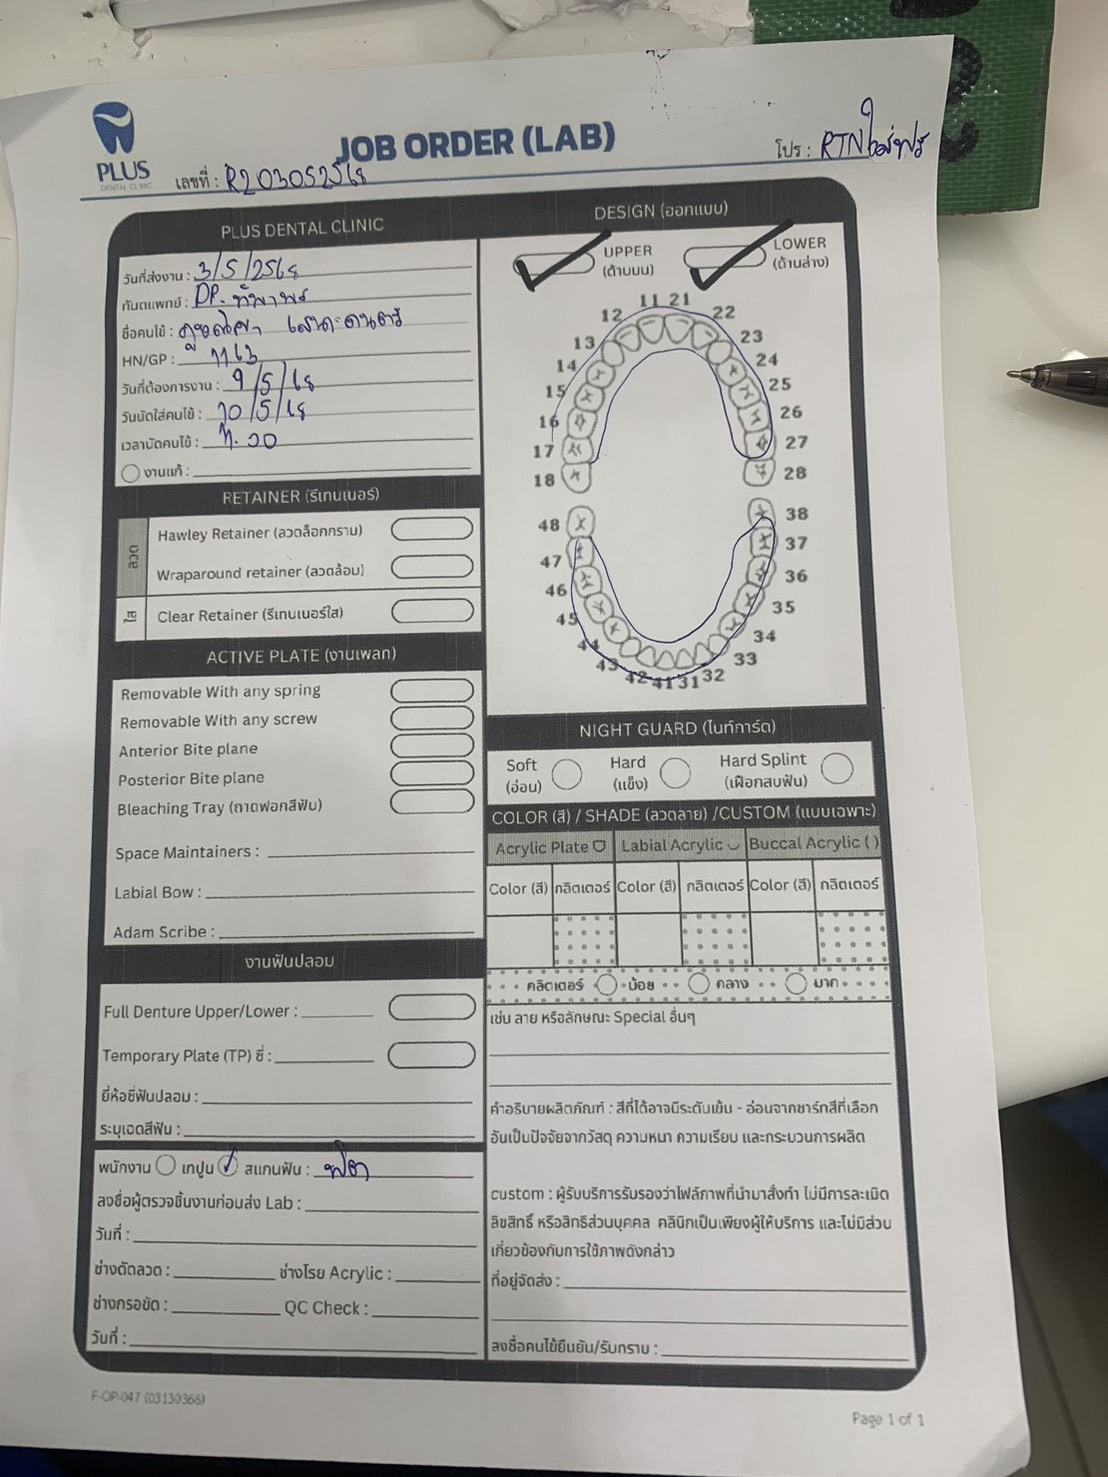 PLUS
DENTAL CLINIC
JOB ORDER (LAB)
เลขที่ : R203052568
โปร : RTNใสฟรี
PLUS DENTAL CLINIC
วันที่ส่งงาน : 3/5/2568
ทันตแพทย์ : DR.
ชื่อคนไข้ :
HN/GP : 1163
วันที่ต้องการงาน : 9/5/68
วันนัดใส่คนไข้ : 10/5/68
เวลานัดคนไข้ : 11.00
งานแก้ :
RETAINER (รีเทนเนอร์)
ลวด
Hawley Retainer (ลวดล็อกกราม)
Wraparound retainer (ลวดล้อม)
ใส
Clear Retainer (รีเทนเนอร์ใส)
ACTIVE PLATE (งานเพลท)
Removable With any spring
Removable With any screw
Anterior Bite plane
Posterior Bite plane
Bleaching Tray (ถาดฟอกสีฟัน)
Space Maintainers :
Labial Bow :
Adam Scribe :
งานฟันปลอม
Full Denture Upper/Lower :
Temporary Plate (TP) ซี่ :
ยี่ห้อซี่ฟันปลอม :
ระบุเฉดสีฟัน :
พนักงาน เทปูน สแกนฟัน :
ลงชื่อผู้ตรวจชิ้นงานก่อนส่ง Lab :
วันที่ :
ช่างดัดลวด : ช่างโรย Acrylic :
ช่างกรอขัด : QC Check :
วันที่ :
DESIGN (ออกแบบ)
UPPER
(ด้านบน)
LOWER
(ด้านล่าง)
11 21
12 22
13 23
14 24
15 25
16 26
17 27
18 28
48 38
47 37
46 36
45 35
44 34
43 33
42 41 31 32
NIGHT GUARD (ไนท์การ์ด)
Soft
(อ่อน)
Hard
(แข็ง)
Hard Splint
(เฝือกสบฟัน)
COLOR (สี) / SHADE (ลวดลาย) /CUSTOM (แบบเฉพาะ)
Acrylic Plate Labial Acrylic Buccal Acrylic ( )
Color (สี) กลิตเตอร์ Color (สี) กลิตเตอร์ Color (สี) กลิตเตอร์
กลิตเตอร์ น้อย กลาง มาก
เช่น ลาย หรือลักษณะ Special อื่นๆ
คำอธิบายผลิตภัณฑ์ : สีที่ได้อาจมีระดับเข้ม - อ่อนจากชาร์ทสีที่เลือก
อันเป็นปัจจัยจากวัสดุ ความหนา ความเรียบ และกระบวนการผลิต
custom : ผู้รับบริการรับรองว่าไฟล์ภาพที่นำมาสั่งทำ ไม่มีการละเมิด
ลิขสิทธิ์ หรือสิทธิส่วนบุคคล คลินิกเป็นเพียงผู้ให้บริการ และไม่มีส่วน
เกี่ยวข้องกับการใช้ภาพดังกล่าว
ที่อยู่จัดส่ง :
ลงชื่อคนไข้ยืนยัน/รับทราบ :
F-OP-047 (03130368)
Page 1 of 1